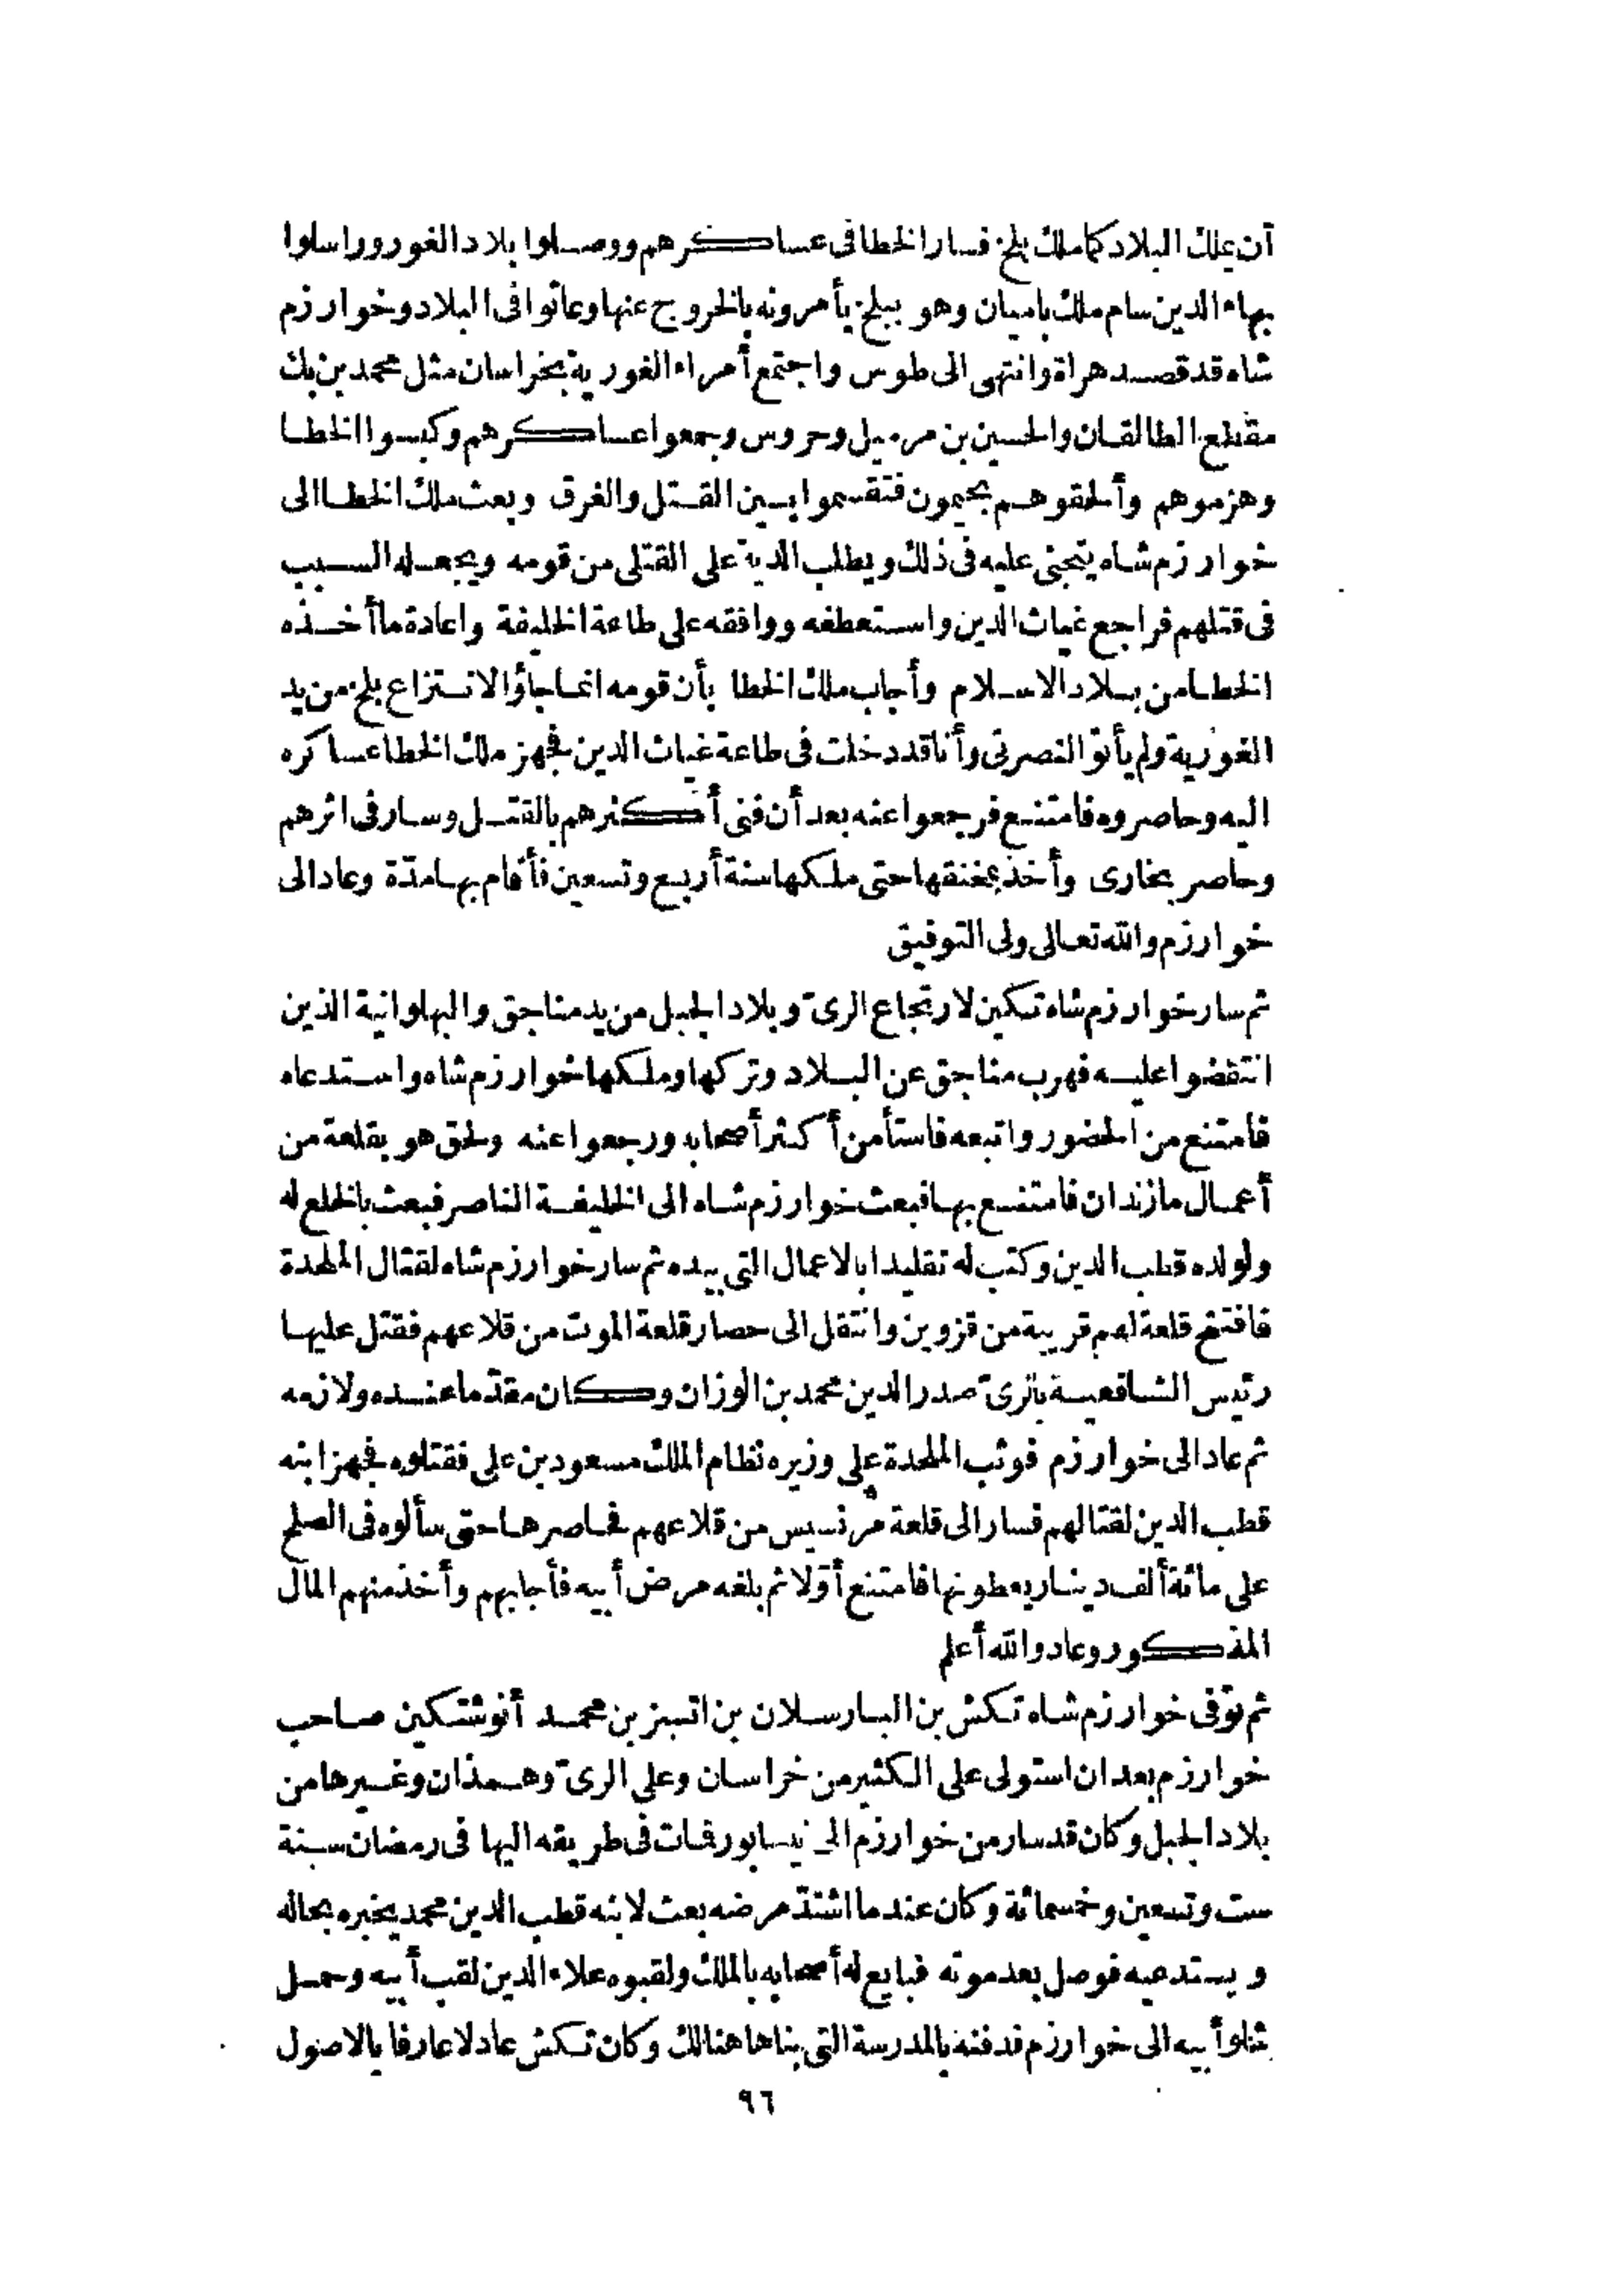 أن يملك البلاد كما ملك بلخ فسار الخطا فى عساكرهم ووصلوا بلاد الغور وراسلوا
بهاء الدين سام ملك باميان وهو ببلخ يأمرونه بالخروج عنها وعاثوا فى البلاد وخوارزم
شاه قد قصد هراة وانتهى الى طوس واجتمع أمراء الغورية بخراسان مثل محمد بن بك
مقطع الطالقان والحسين بن مرميل وحروس وجمعوا عساكرهم وكبسوا الخطا
وهزموهم وألحقوهم بجيحون فتقسموا بين القتل والغرق وبعث ملك الخطا الى
خوارزم شاه يتجنى عليه فى ذلك ويطلب الدية على القتلى من قومه ويجعله السبب
فى قتلهم فراجع غياث الدين واستعطفه ووافقه على طاعة الخليفة واعادة ما أخذه
الخطا من بلاد الاسلام وأجاب ملك الخطا بأن قومه انما جاؤا لانتزاع بلخ من يد
الغورية ولم يأتوا لنصرتى وأنا قد دخلت فى طاعة غياث الدين فجهز ملك الخطا عساكره
اليه وحاصروه فامتنع فرجعوا عنه بعد أن فنى أكثرهم بالقتل وسار فى اثرهم
وحاصر بخارى وأخذ بمخنقها حتى ملكها سنة أربع وتسعين فأقام بها مدّة وعاد الى
خوارزم والله تعالى ولى التوفيق
ثم سار خوارزم شاه تكين لارتجاع الرىّ وبلاد الجبل من يد مناجق والبهلوانية الذين
انتقضوا عليه فهرب مناجق عن البلاد وتركها وملكها خوارزم شاه واستدعاه
فامتنع من الحضور واتبعه فاستأمن أكثر أصحابه ورجعوا عنه ولحق هو بقلعة من
أعمال مازندان فامتنع بها فبعث خوارزم شاه الى الخليفة الناصر فبعث بالخلع له
ولولده قطب الدين وكتب له تقليدا بالاعمال التى بيده ثم سار خوارزم شاه لقتال الملحدة
فافتتح قلعة لهم قريبة من قزوين وانتقل الى حصار قلعة الموت من قلاعهم فقتل عليها
رئيس الشافعية بالرىّ صدر الدين محمد بن الوزان وكان مقدّما عنده ولازمه
ثم عاد الى خوارزم فوثب الملحدة على وزيره نظام الملك مسعود بن على فقتلوه فجهز ابنه
قطب الدين لقتالهم فسار الى قلعة مرنسيس من قلاعهم فحاصرها حتى سألوه فى الصلح
على مائة ألف دينار يعطونها فامتنع أوّلا ثم بلغه مرض أبيه فأجابهم وأخذ منهم المال
المذكور وعاد والله أعلم
ثم توّفى خوارزم شاه تكش بن البارسلان بن اتسز بن محمد أنوشتكين صاحب
خوارزم بعد ان استولى على الكثير من خراسان وعلى الرىّ وهمذان وغيرها من
بلاد الجبل وكان قد سار من خوارزم الى نيسابور فمات فى طريقه اليها فى رمضان سنة
ست وتسعين وخمسمائة وكان عندما اشتدّ مرضه بعث لابنه قطب الدين محمد يخبره بحاله
ويستدعيه فوصل بعد موته فبايع له أصحابه بالملك ولقبوه علاء الدين لقب أبيه وحمل
شلو أبيه الى خوارزم فدفنه بالمدرسة التى بناها هنالك وكان تكش عادلا عارفا بالاصول
٩٦